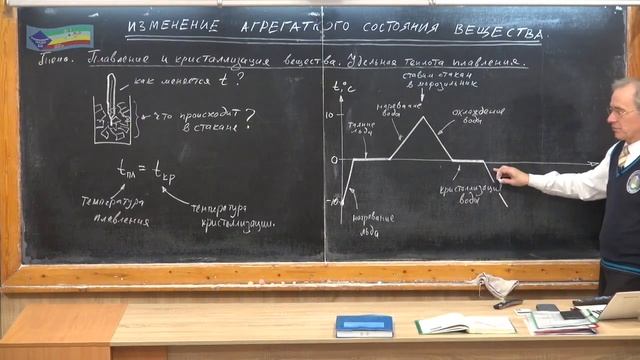 ИЗМЕНЕНИЕ АГРЕГАТНОГО СОСТОЯНИЯ ВЕЩЕСТВА.
Тема. Плавление и кристаллизация вещества. Удельная теплота плавления.
как меняется t?
что происходит
в стакане?
tпл = tкр
температура
плавления
температура
кристаллизации.
ставим стакан
в морозильник
t,°C
10
0
-10
нагревание
льда
таяние
льда
нагревание
вода
охлаждение
вода
кристаллизация
вода